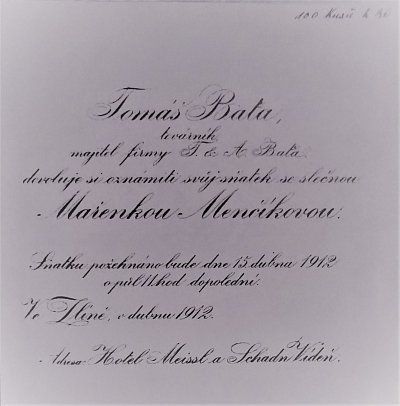 100 Kusů k
Tomáš Baťa,
továrník,
majitel firmy T. & A. Baťa
dovoluje si oznámiti svůj sňatek se slečnou
Mařenkou Menčíkovou.
Sňatku požehnáno bude dne 15. dubna 1912
o půl 11. hod dopolední.
Ve Zlíně, v dubnu 1912.
Adresa: Hotel Meissl a Schadn Vídeň.